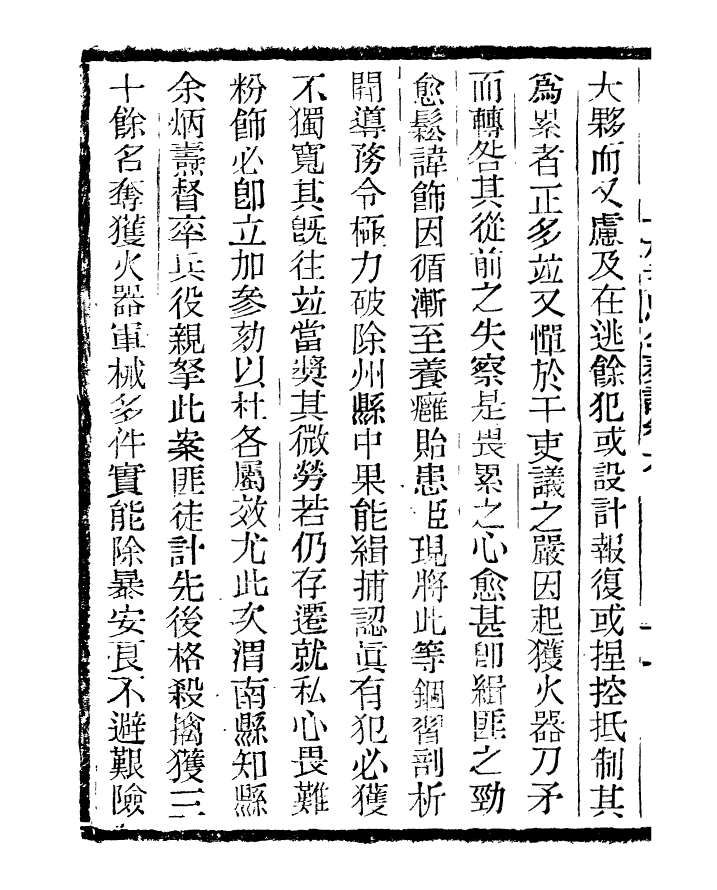 大夥而又慮及在逃餘犯或設計報復或捏控抵制其
爲累者正多並又憚於干吏議之嚴因起獲火器刀矛
而轉咎其從前之失察是畏累之心愈甚卽緝匪之勁
愈鬆諱飾因循漸至養癰貽患臣現將此等錮習剖析
開導務令極力破除州縣中果能緝捕認眞有犯必獲
不獨寬其既往並當奬其微勞若仍存遷就私心畏難
粉飾必卽立加參劾以杜各屬效尤此次渭南縣知縣
余炳燾督率兵役親拏此案匪徒計先後格殺擒獲三
十餘名奪獲火器軍械多件實能除暴安良不避艱險